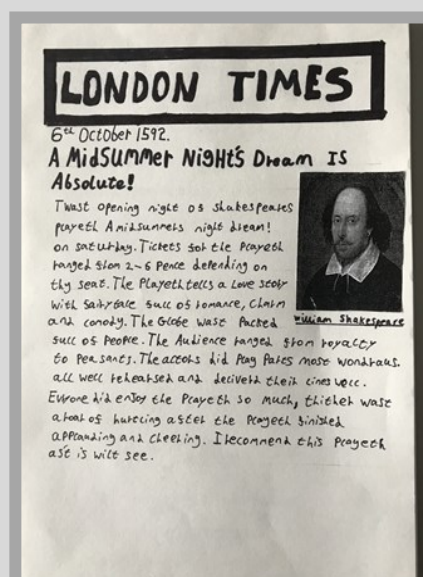 LONDON TIMES
6th October 1592.
A MidSUMMER NIGHt'S Dream IS
Absolute!
Twast opening night of Shakespeares
playeth A midsunners night dream!
on saturday. Tickets for the Playeth
ranged from 2-6 Pence depending on
thy seat. The Playeth tells a Love story
with fairytale full of romance, Charm
and comody. The Globe wast Packed
full of People. The Audience ranged from royalty
to Peasants. The actors did Play Pates most wondraus.
all well rehearsed and deliverd their lines well.
Evrone did enjoy the Playeth so much, thither wast
a roar of hurteling after the Playeth finished
applauding and cheering. I recommend this Playeth
as't is wilt see.
William Shakespeare